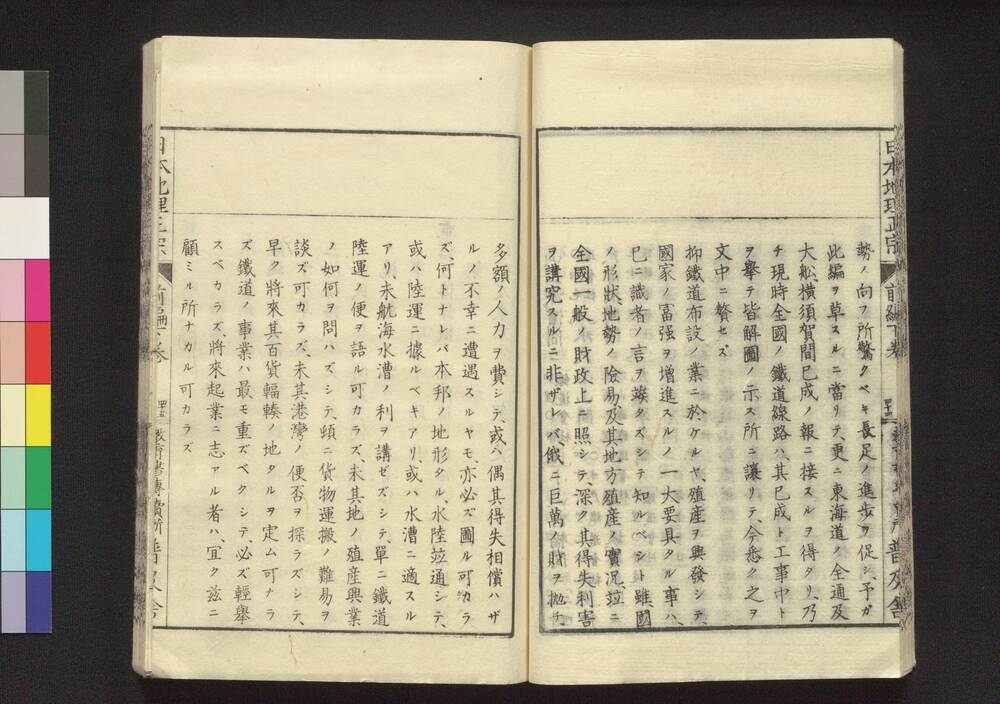 日本地理正宗
前編下巻
勢ノ向フ所驚クベキ長足ノ進歩ヲ促シ、予ガ
此編ヲ草スルニ當リテ、更ニ東海道ノ全通及
大舩、横須賀間已成ノ報ニ接スルヲ得タリ、乃
チ現時全國ノ鐵道線路ハ、其已成ト工事中ト
ヲ擧テ皆解圖ノ示ス所ニ讓リテ、今悉ク之ヲ
文中ニ贅セズ
抑鐵道布設ノ業ニ於ケルヤ、殖産ヲ興發シテ、
國家ノ冨强ヲ增進スルノ一大要具タル事ハ、
已ニ識者ノ言ヲ竢タズシテ知ルベシト雖、國
ノ形狀、地勢ノ險易及其地方殖産ノ實况竝ニ
全國一般ノ財政上ニ照シテ、深ク其得失利害
ヲ講究スルニ非ザレバ、餓ニ巨萬ノ財ヲ抛チ、
多額ノ人力ヲ費シテ、或ハ偶其得失相償ハザ
ルノ不幸ニ遭遇スルヤモ、亦必ズ圖ル可カラ
ズ、何トナレバ本邦ノ地形タル、水陸竝通シテ、
或ハ陸運ニ據ルベキアリ、或ハ水漕ニ適スル
アリ、未航海水漕ノ利ヲ講ゼズシテ、單ニ鐵道
陸運ノ便ヲ語ル可カラズ、未其地ノ殖産興業
ノ如何ヲ問ハズシテ、頓ニ貨物運搬ノ難易ヲ
談ズ可カラズ、未其港灣ノ便否ヲ探ラズシテ、
早ク將來其百貨輻輳ノ地タルヲ定ム可ナラ
ズ、鐵道ノ事業ハ最モ重ズベクシテ、必ズ輕擧
スベカラズ、將來起業ニ志アル者ハ、宜ク茲ニ
顧ミル所ナカル可カラズ
日本地理正宗
前編下巻
四十三
教育書專賣所普及舎